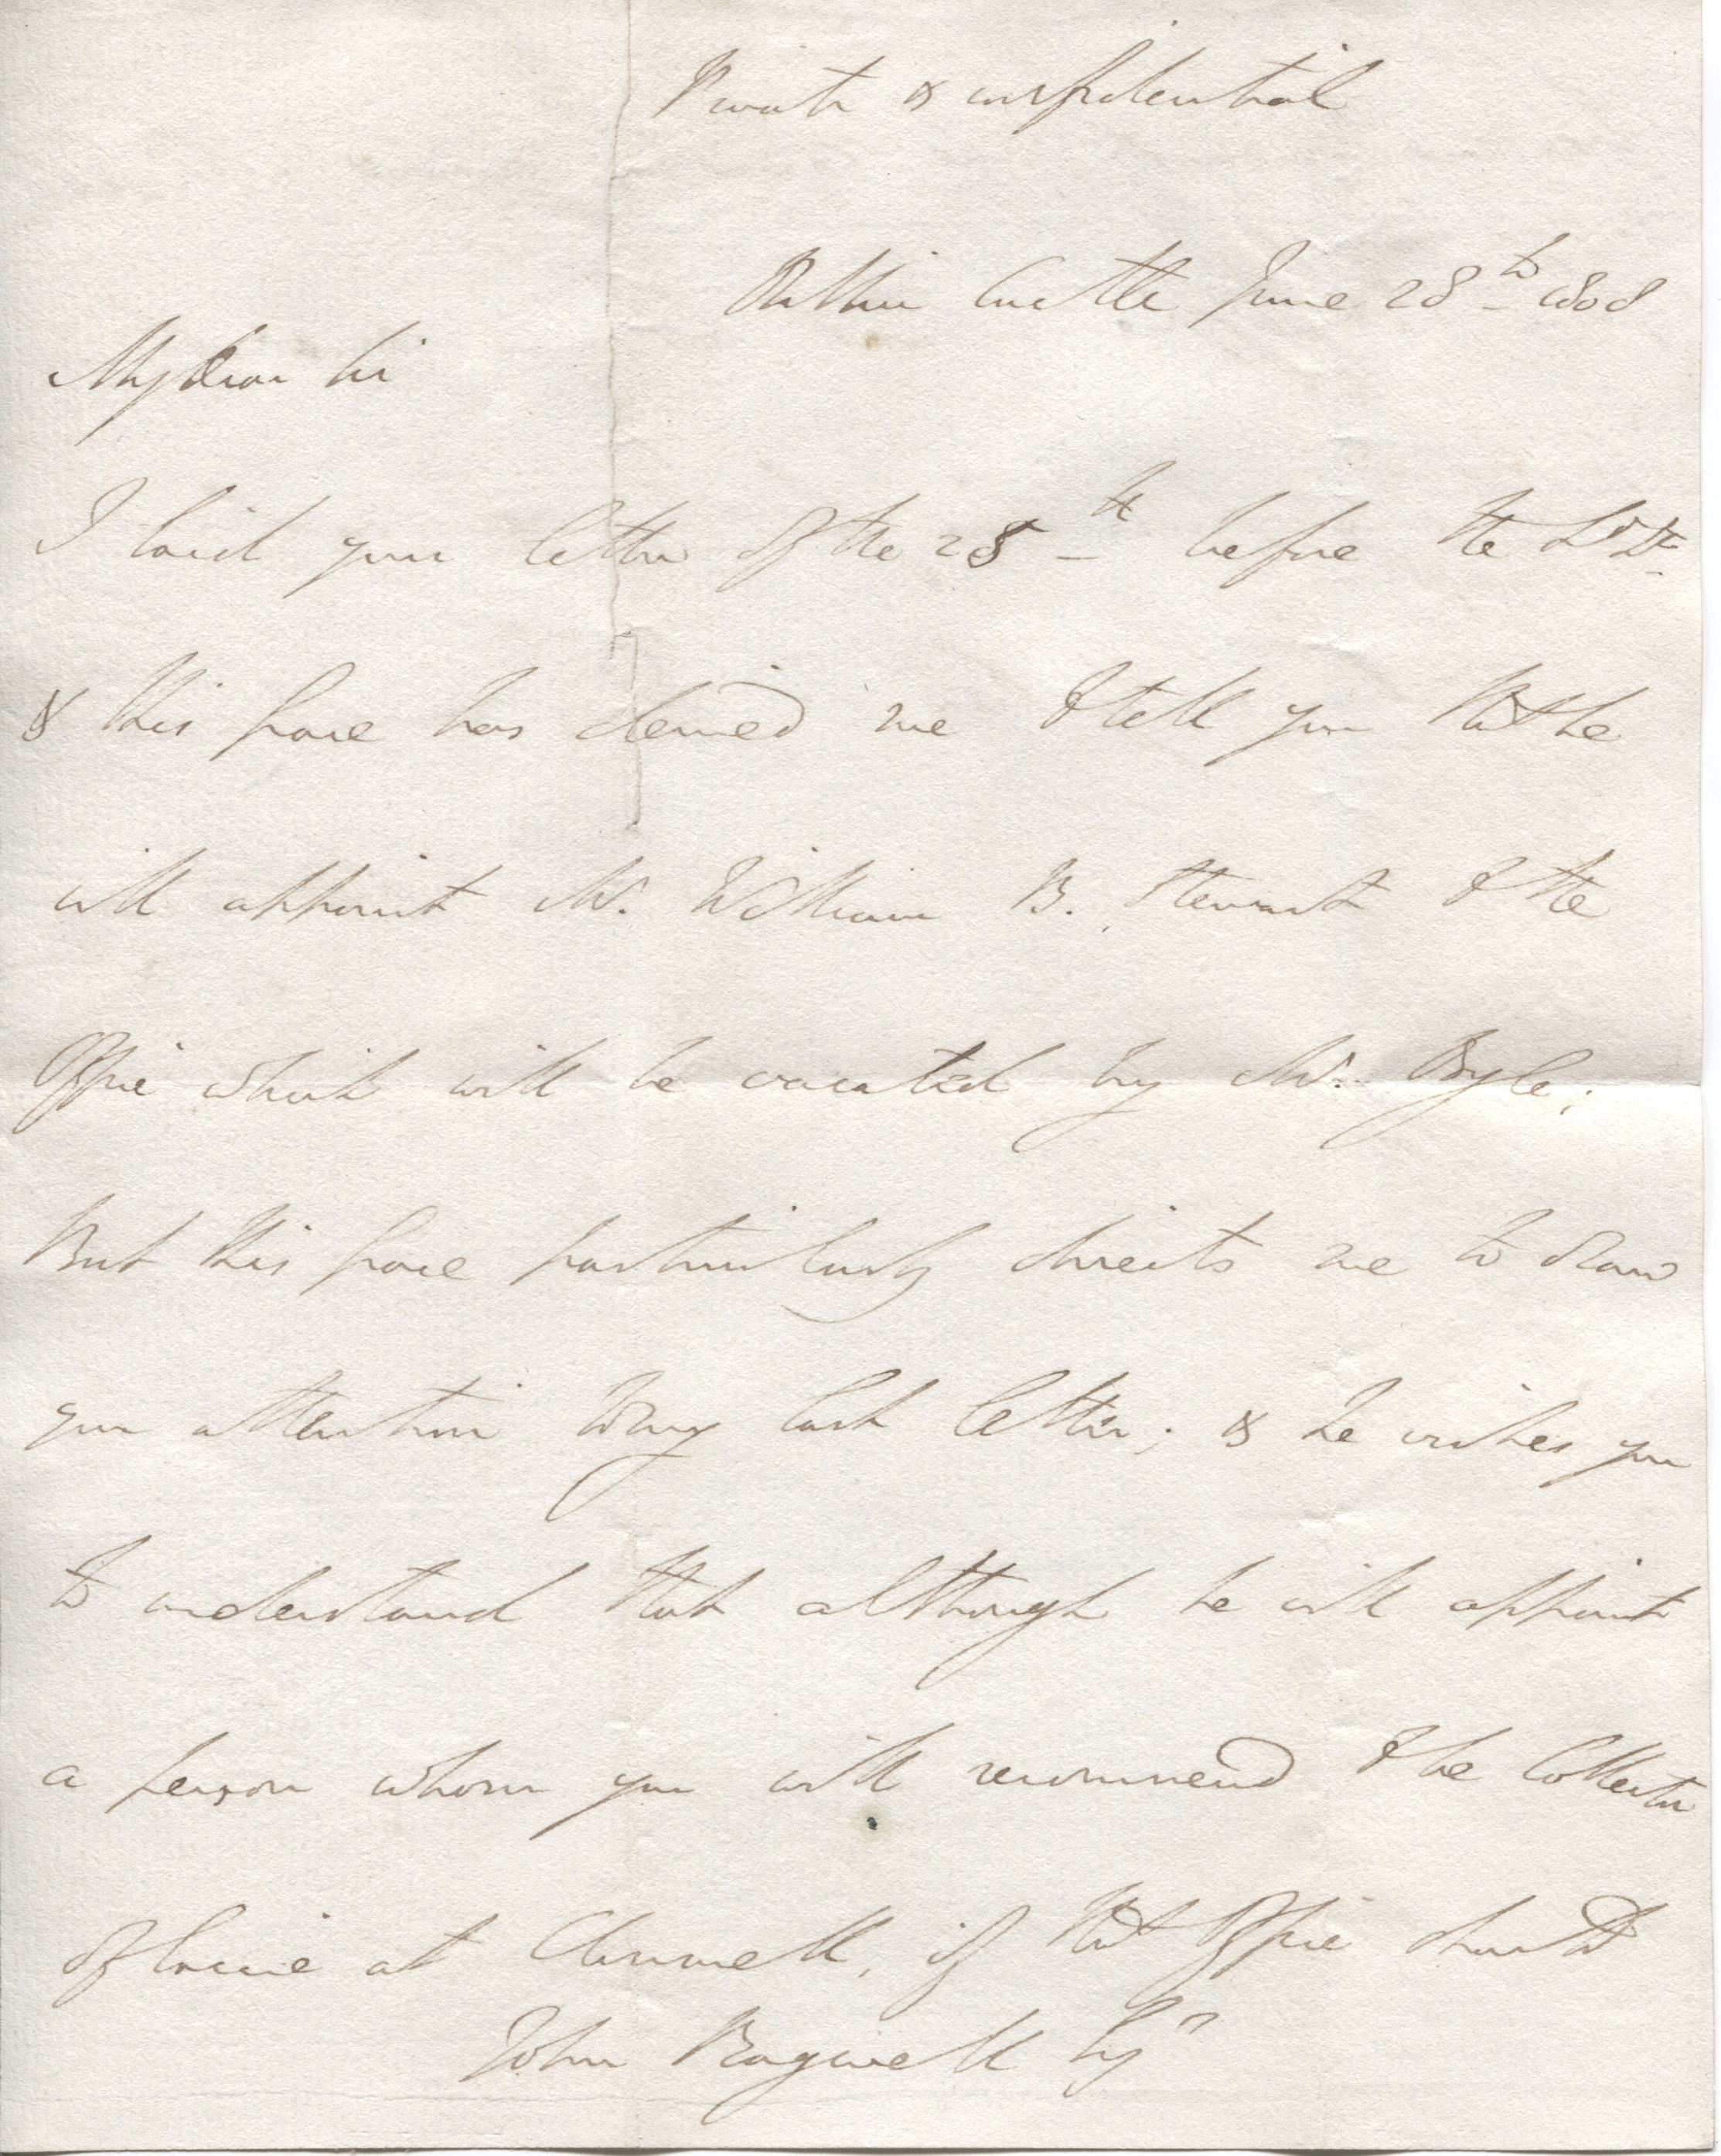 Private & confidential
Dublin Castle June 28th 1808
My dear Sir
I laid your letter of the 25th before the Ld Lt
& His Grace has desired me to tell you that he
will appoint Mr. William B. Stewart to the
Office which will be vacated by Mr. Boyle;
But His Grace particularly directs me to draw
your attention to my last letter; & he wishes you
to understand that although he will appoint
a person whom you will recommend to be Collector
of Excise at Clonmell, if that Office should
John Bagwell Esqr